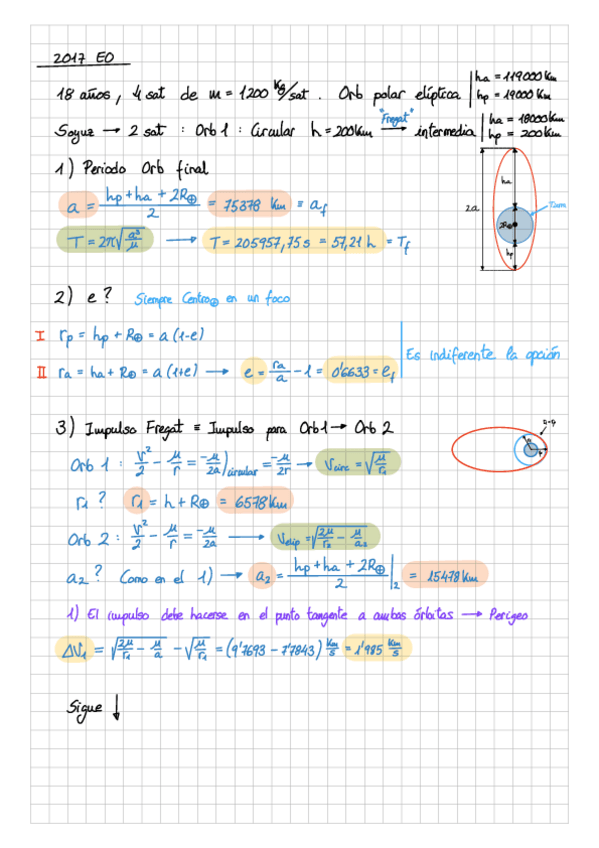 2017 EO
18 años, 4 sat de m = 1200 kg/sat. Orb polar elíptica | ha = 119000 Km
hp = 19000 Km
Soyuz → 2 sat : Orb 1 : Circular h = 200 Km "Fregat" → intermedia | ha = 18000 Km
hp = 200 Km
1) Periodo Orb final
a = (hp + ha + 2R⊕)/2 = 75378 Km ≡ af
T = 2π√(a³/μ) → T = 205957,75 s = 57,21 h = Tf
ha
2a
2R⊕
hp
2) e? Siempre Centro⊕ en un foco
I rp = hp + R⊕ = a (1-e)
II ra = ha + R⊕ = a (1+e) → e = ra/a - 1 = 0'6633 = ef
Es indiferente la opción
3) Impulso Fregat ≡ Impulso para Orb 1 → Orb 2
Orb 1 : V²/2 - μ/r = -μ/2a)circular = -μ/2r → Vcirc = √(μ/r1)
r1? r1 = h + R⊕ = 6578 Km
Orb 2 : V²/2 - μ/r = -μ/2a → Velip = √(2μ/r2 - μ/a2)
a2? Como en el 1) → a2 = (hp + ha + 2R⊕)/2 |2 = 15478 Km
1) El impulso debe hacerse en el punto tangente a ambas órbitas → Perigeo
ΔV1 = √(2μ/r1 - μ/a) - √(μ/r1) = (9'7693 - 7'7843) Km/s = 1'985 Km/s
Sigue ↓